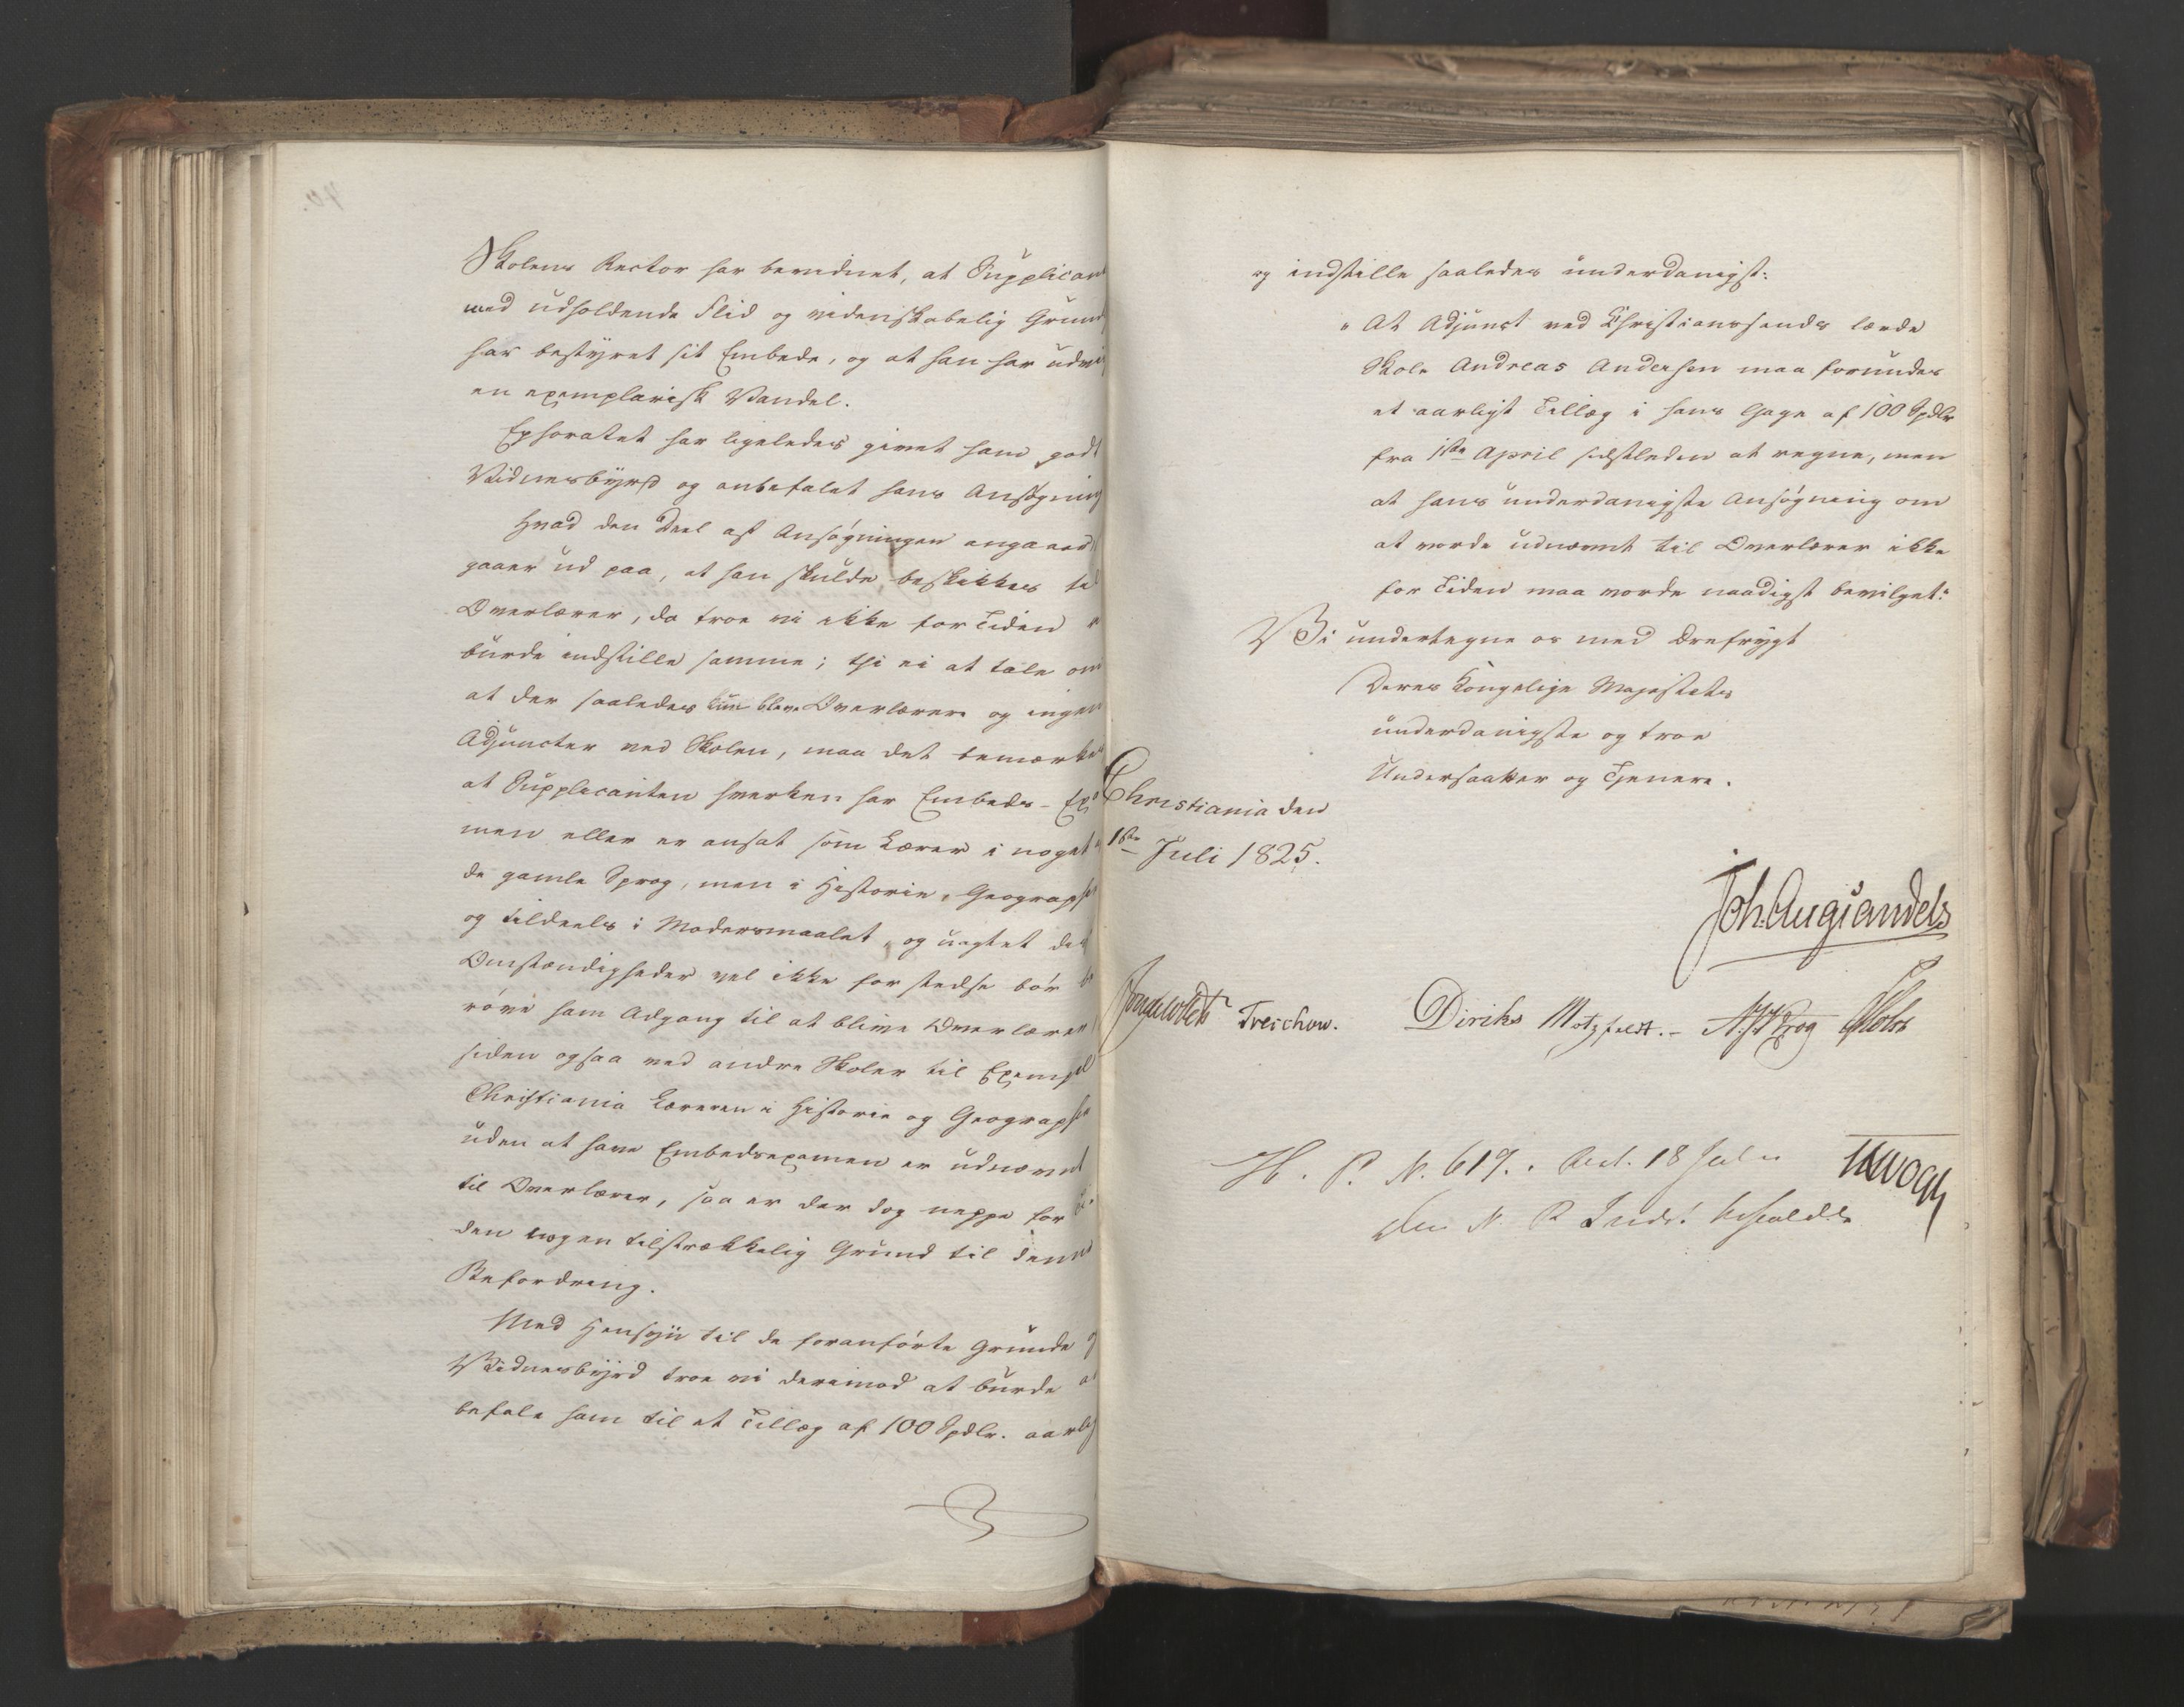 Skolens Rector har bevidnet, at Supplicant
med udholdende Flid og videnskabelig Grund
har bestyret sit Embede, og at han har udvi
en exemplarisk Vandel.
Ephoratet har ligeledes givet ham godt
Vidnesbyrd og anbefalet hans Ansøgning
Hvad den Deel af Ansøgningen angaaer
gaaer ud paa, at han skulde beskikkes til
Overlærer, da troe vi ikke for Tiden
burde indstille samme; thi ei at tale om
at der saaledes kun bleve Overlærere og ingen
Adjuncter ved Skolen, maa det bemærkes
at Supplicanten hverken har Embeds-Exa
men eller er ansat som Lærer i noget a
de gamle Sprog, men i Historie, Geographie
og tildeels i Modersmaalet, og uagtet det
Omstændigheder vel ikke for stedse bør be
røve ham Adgang til at blive Overlærer
siden ogsaa ved andre Skoler til Exempel
Christiania Læreren i Historie og Geographie
uden at have Embedsexamen er udnævnt
til Overlærer, saa er der dog neppe for Ti
den nogen tilstrækkelig Grund til denne
Befordring.
Med Hensyn til de foranførte Grunde og
Vidnesbyrd troe vi derimod at burde an
befale ham til et Tillæg af 100 Spdlr. aarlig
og indstille saaledes underdanigst:
"At Adjunct ved Christianssands lærde
Skole Andreas Andersen maa forundes
et aarligt Tillæg i hans Gage af 100 Spdlr
fra 1ste April sidstleden at regne, men
at hans underdanigste Ansøgning om
at vorde udnævnt til Overlærer ikke
for Tiden maa vorde naadigst bevilget."
Vi undertegne os med Ærefrygt
Deres Kongelige Majestæts
underdanigste og troe
Undersaatter og Tjenere.
Christiania den
1ste Juli 1825.
Joh. Aug: Sandels
Sommerfeldt Treschow. Diriks Motzfeldt. - Krog Holst
JHVogt
H. P. N. 617. Res. 18 Juli
den N. R. Indst. bifaldes